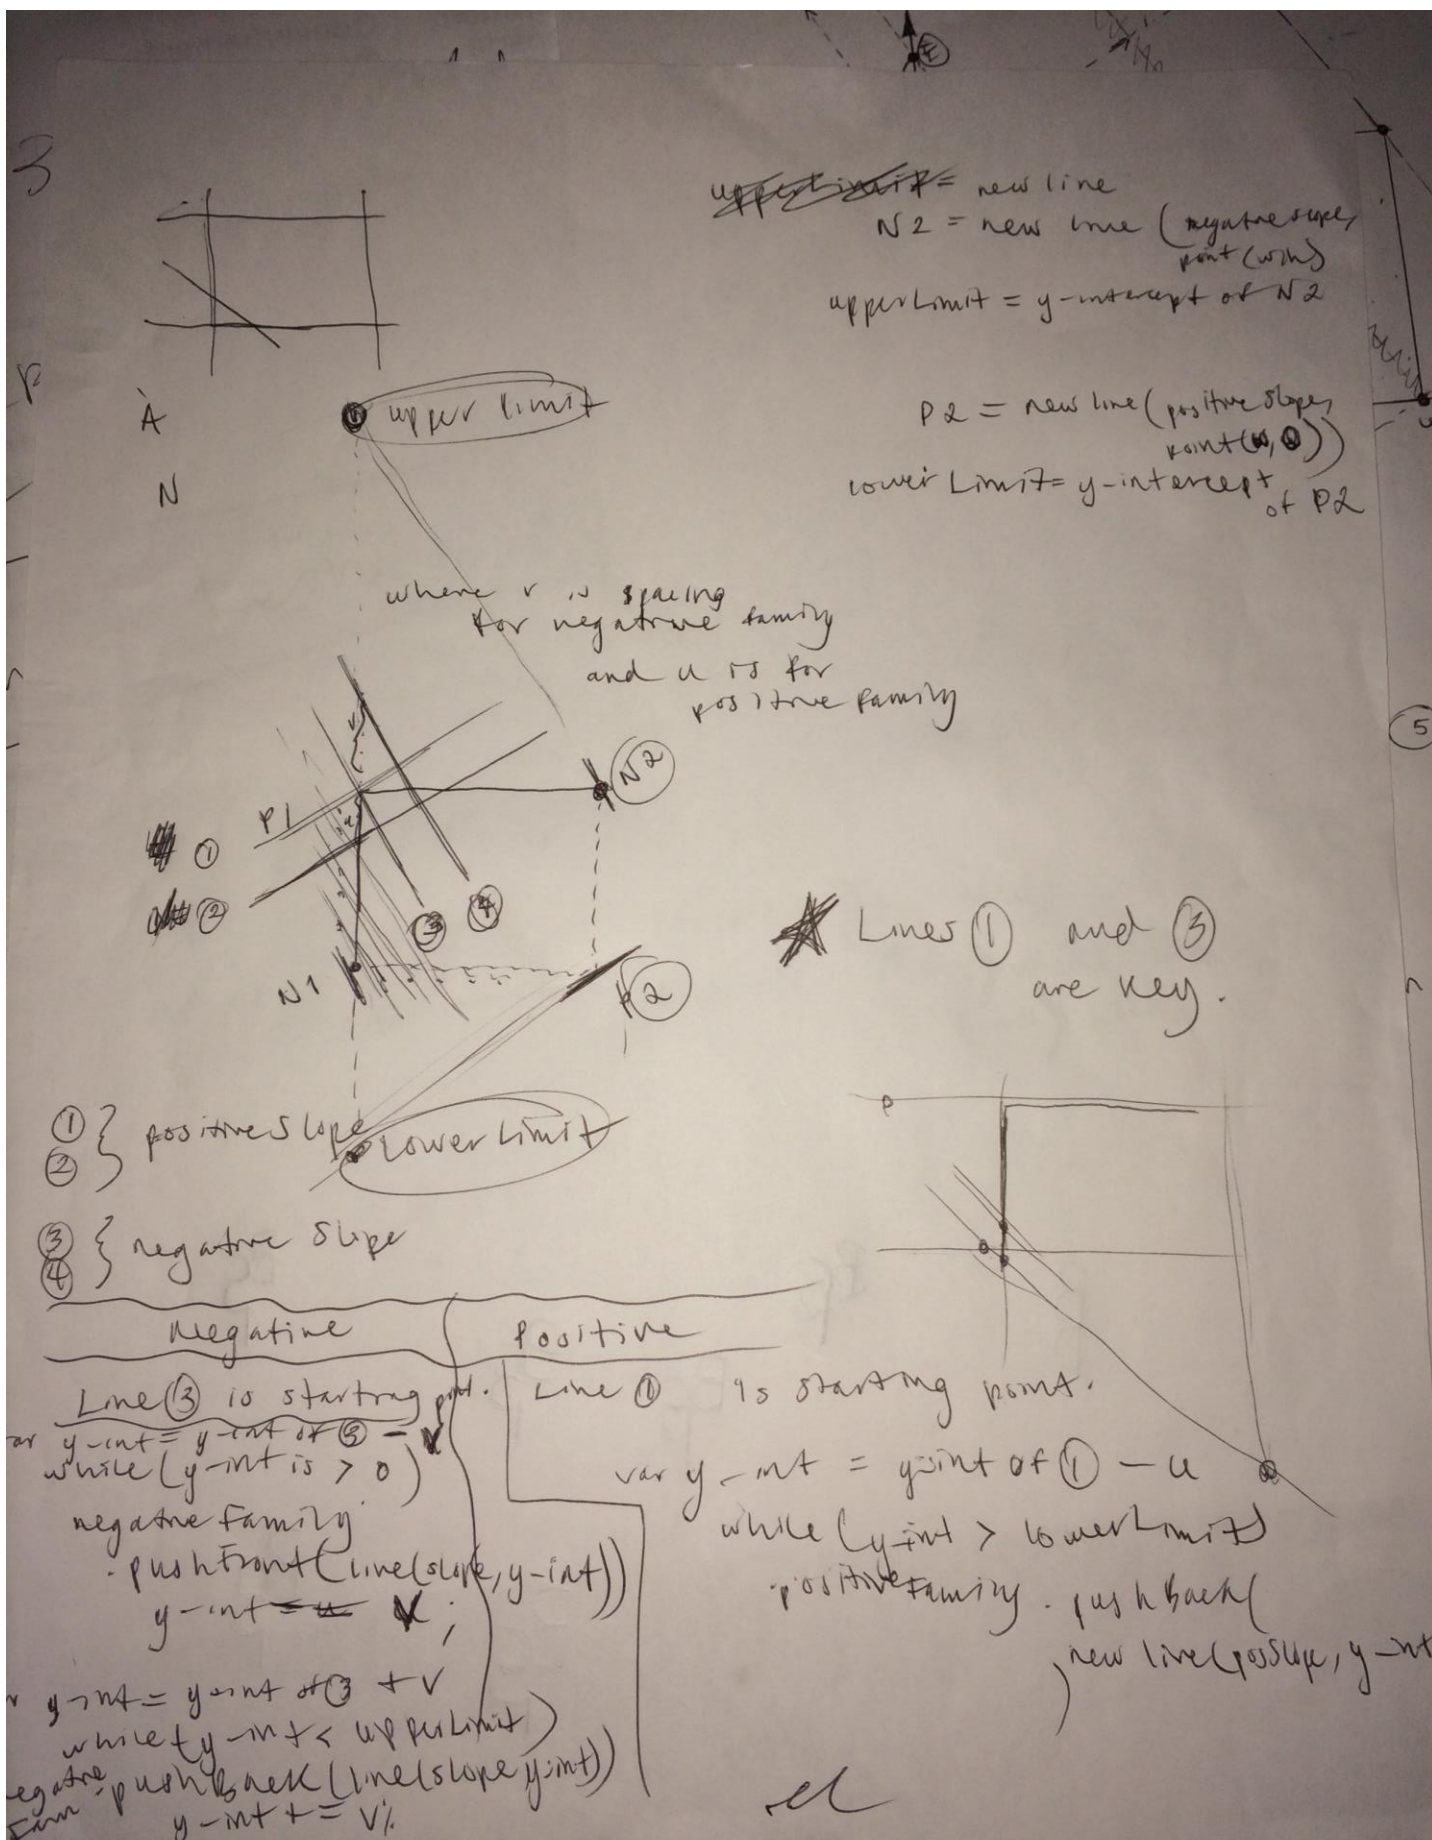 3
E
upperLimit = new line
N2 = new line (negative slope,
point (w,h)
upperLimit = y-intercept of N2
P
A
N
upper limit
P2 = new line (positive slope,
point (w, 0))
lower Limit = y-intercept
of P2
where v is spacing
for negative family
and u is for
positive family
5
v
N2
P1
u
1
2
3
4
★ Lines 1 and 3
are key.
N1
P2
1
2 } positive Slope
Lower Limit
3
4 } negative Slope
P
Negative
Positive
Line 3 is starting point.
Line 1 is starting point.
var y-int = y-int of 3 - v
while (y-int is > 0)
negative Family
.pushFront(line(slope, y-int))
y-int = u v;
y-int = y-int of 3 + v
while (y-int < upperLimit)
.pushBack(line(slope, y-int))
y-int += v;
var y-int = y-int of 1 - u
while (y-int > lowerLimit)
positiveFamily.pushBack(
new line(posSlope, y-int
)